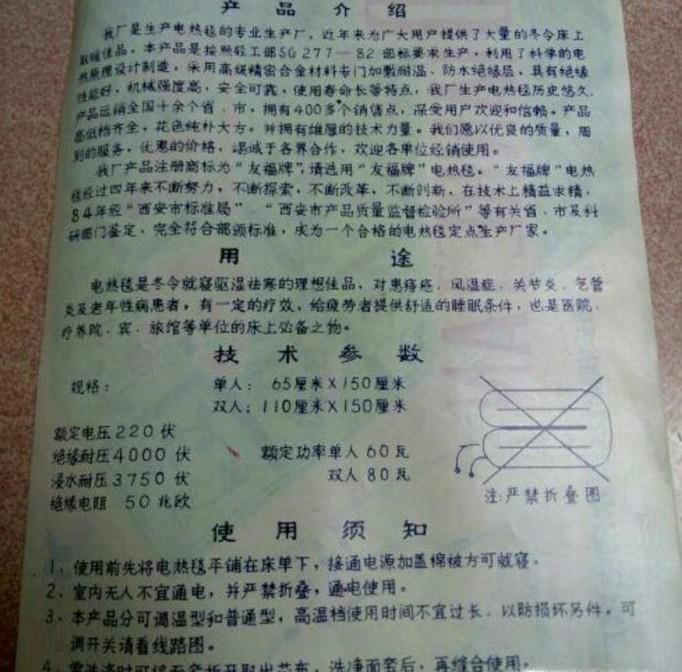 产品介绍
我厂是生产电热毯的专业生产厂，近年来为广大用户提供了大量的冬令床上
取暖佳品，本产品是按照轻工部SG277—82部标要求生产，利用了科学的电
热原理设计制造，采用高级精密合金材料专门加敷耐温、防水绝缘层，具有绝缘
性能好，机械强度高，安全可靠，使用寿命长等特点，我厂生产电热毯历史悠久，
产品远销全国十余个省、市，拥有400多个销售点，深受用户欢迎和信畅。产品
高低档齐全，花色纯朴大方。并拥有雄厚的技术力量。我们愿以优良的质量，周
到的服务，优惠的价格，竭诚于各界合作，欢迎各单位经销使用。
我厂产品注册商标为“友福牌”，请选用“友福牌”电热毯。“友福牌”电热
毯经过四年来不断努力，不断探索，不断改革，不断创新、在技术上精益求精，
84年经“西安市标准局”“西安市产品质量监督检验所”等有关省、市及科
研部门鉴定、完全符合部颁标准，成为一个合格的电热毯定点生产厂家。
用途
电热毯是冬令就寝驱湿祛寒的理想佳品，对患痔疮、风湿症、关节炎、气管
炎及老年性病患者，有一定的疗效，给疲劳者提供舒适的睡眠条件，也是医院、
疗养院、宾、旅馆等单位的床上必备之物。
技术参数
规格：单人：65厘米X150厘米
双人：110厘米X150厘米
额定电压220伏
绝缘耐压4000伏 额定功率单人60瓦
浸水耐压3750伏 双人80瓦
绝缘电阻 50兆欧
注：严禁折叠图
使用须知
1、使用前先将电热毯平铺在床单下，接通电源加盖棉被方可就寝。
2、室内无人不宜通电，并严禁折叠，通电使用。
3、本产品分可调温型和普通型，高温档使用时间不宜过长，以防损坏另件。可
调开关请看线路图。
4、需洗涤时可将毛套拆开取出芯布，洗净面套后，再缝合使用。